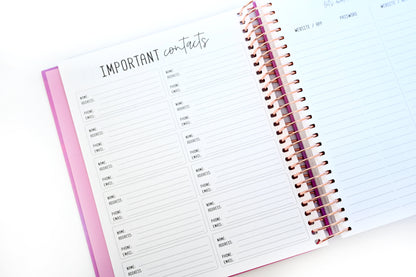 IMPORTANT contacts
NAME:
ADDRESS:
PHONE:
EMAIL:
NAME:
ADDRESS:
PHONE:
EMAIL:
NAME:
ADDRESS:
PHONE:
EMAIL:
NAME:
ADDRESS:
PHONE:
EMAIL:
NAME:
ADDRESS:
PHONE:
EMAIL:
NAME:
ADDRESS:
PHONE:
EMAIL:
NAME:
ADDRESS:
PHONE:
EMAIL:
NAME:
ADDRESS:
PHONE:
EMAIL:
NAME:
ADDRESS:
PHONE:
EMAIL:
NAME:
ADDRESS:
PHONE:
EMAIL:
NAME:
ADDRESS:
WEBSITE / APP
PASSWORD
WEBSITE /